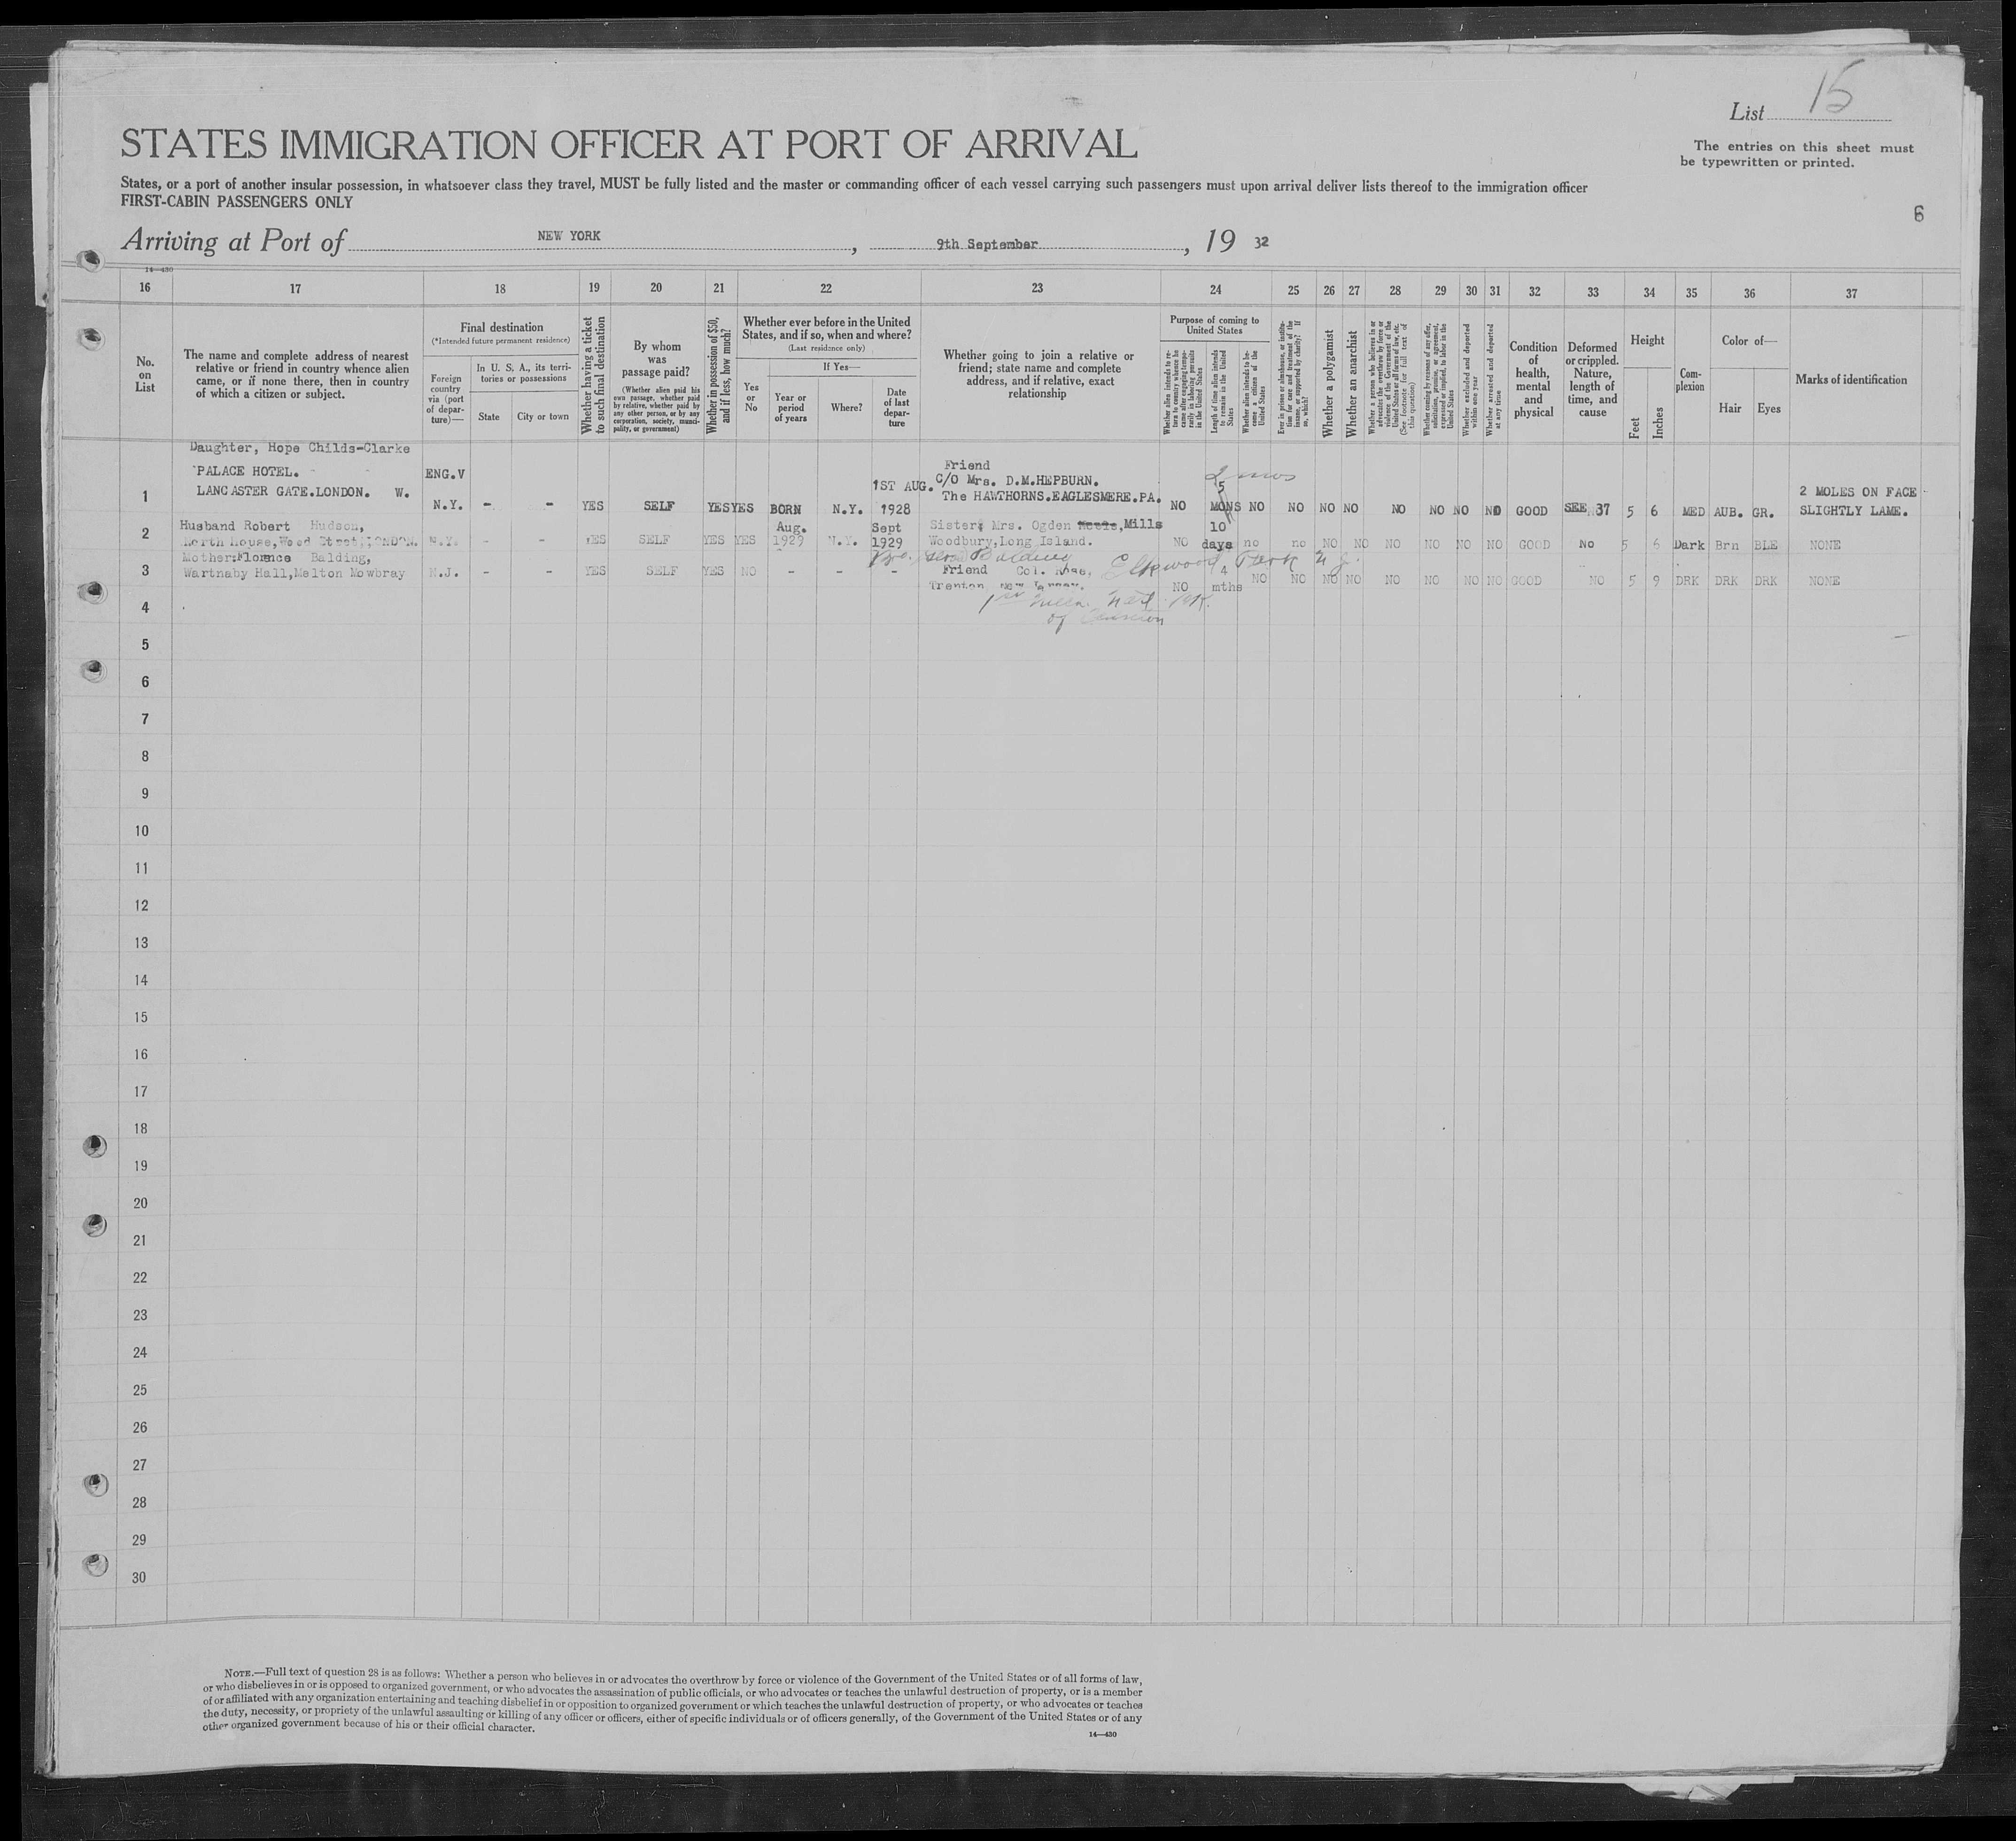 List 15
STATES IMMIGRATION OFFICER AT PORT OF ARRIVAL
The entries on this sheet must
be typewritten or printed.
States, or a port of another insular possession, in whatsoever class they travel, MUST be fully listed and the master or commanding officer of each vessel carrying such passengers must upon arrival deliver lists thereof to the immigration officer
FIRST-CABIN PASSENGERS ONLY
6
Arriving at Port of NEW YORK, 9th September, 19 32
14—430
16 17 18 19 20 21 22 23 24 25 26 27 28 29 30 31 32 33 34 35 36 37
No.
on
List
The name and complete address of nearest
relative or friend in country whence alien
came, or if none there, then in country
of which a citizen or subject.
Final destination
(*Intended future permanent residence)
Foreign
country
via (port
of depar-
ture)—
In U. S. A., its terri-
tories or possessions
State
City or town
Whether having a ticket
to such final destination
By whom
was
passage paid?
(Whether alien paid his
own passage, whether paid
by relative, whether paid by
any other person, or by any
corporation, society, munici-
pality, or government)
Whether in possession of $50,
and if less, how much?
Whether ever before in the United
States, and if so, when and where?
(Last residence only)
Yes
or
No
If Yes—
Year or
period
of years
Where?
Date
of last
depar-
ture
Whether going to join a relative or
friend; state name and complete
address, and if relative, exact
relationship
Purpose of coming to
United States
Whether alien intends to re-
turn to country whence he
came after engaging tempo-
rarily in laboring pursuits
in the United States
Length of time alien intends
to remain in the United
States
Whether alien intends to be-
come a citizen of the
United States
Ever in prison or almshouse, or institu-
tion for care and treatment of the
insane, or supported by charity? If
so, which?
Whether a polygamist
Whether an anarchist
Whether a person who believes in or
advocates the overthrow by force or
violence of the Government of the
United States or all forms of law, etc.
(See footnote for full text of
this question)
Whether coming by reasons of any offer,
solicitation, promise, or agreement,
expressed or implied, to labor in the
United States
Whether excluded and deported
within one year
Whether arrested and deported
at any time
Condition
of
health,
mental
and
physical
Deformed
or crippled.
Nature,
length of
time, and
cause
Height
Feet
Inches
Com-
plexion
Color of—
Hair
Eyes
Marks of identification
Daughter, Hope Childs-Clarke
PALACE HOTEL.
LANCASTER GATE.LONDON. W.
1 ENG.V
N.Y. - - YES SELF YES YES BORN N.Y. 1ST AUG.
1928
Friend
C/O Mrs. D.M.HEPBURN.
The HAWTHORNS.EAGLESMERE.PA.
2 mos
NO 5
MONS NO NO NO NO NO NO NO NO GOOD SEE 37 5 6 MED AUB. GR. 2 MOLES ON FACE
SLIGHTLY LAME.
2 Husband Robert Hudson,
North House,Wood Street,LONDON. N.Y. - - YES SELF YES YES Aug.
1929 N.Y. Sept
1929
Sister: Mrs. Ogden Mills
Woodbury,Long Island. NO 10
days no no NO NO NO NO NO NO GOOD No 5 6 Dark Brn BLE NONE
3 Mother:Florence Balding,
Wartnaby Hall,Melton Mowbray N.J. - - YES SELF YES NO - - -
Balding Elkwood Park N J.
Friend Col.
Trenton, New Jersey. NO 4
mths NO NO NO NO NO NO NO NO GOOD NO 5 9 DRK DRK DRK NONE
4
5
6
7
8
9
10
11
12
13
14
15
16
17
18
19
20
21
22
23
24
25
26
27
28
29
30
NOTE.—Full text of question 28 is as follows: Whether a person who believes in or advocates the overthrow by force or violence of the Government of the United States or of all forms of law,
or who disbelieves in or is opposed to organized government, or who advocates the assassination of public officials, or who advocates or teaches the unlawful destruction of property, or is a member
of or affiliated with any organization entertaining and teaching disbelief in or opposition to organized government or which teaches the unlawful destruction of property, or who advocates or teaches
the duty, necessity, or propriety of the unlawful assaulting or killing of any officer or officers, either of specific individuals or of officers generally, of the Government of the United States or of any
other organized government because of his or their official character.
14—430